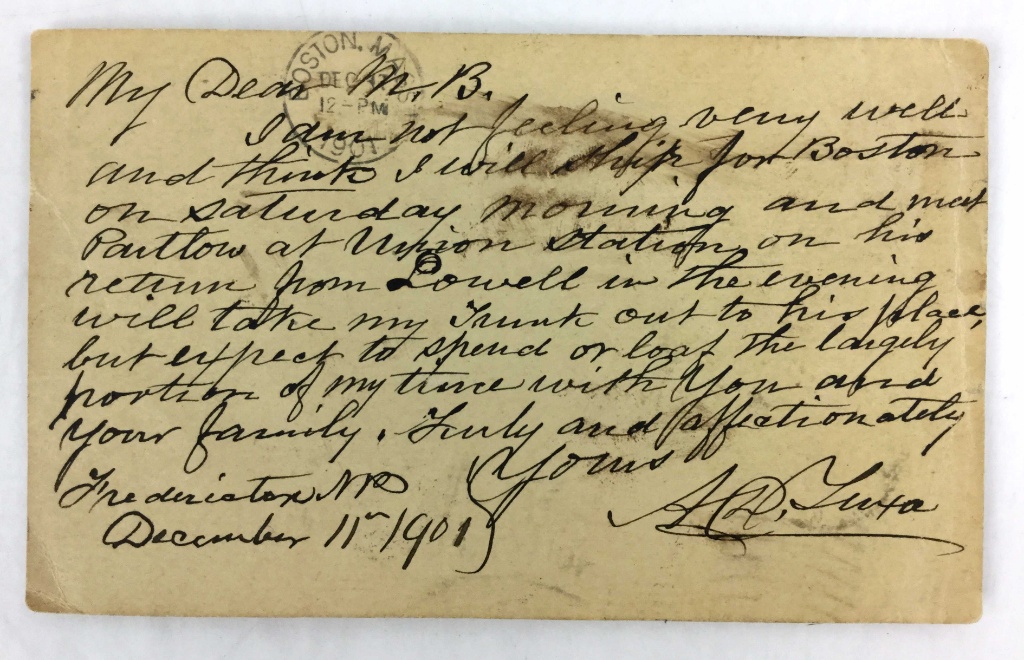 BOSTON, MASS
DEC
12-PM
1901
My Dear Mr. B.
I am not feeling very well
and think I will ship for Boston
on Saturday morning and meet
Partlow at Union Station, on his
return from Lowell in the evening
will take my Trunk out to his place,
but expect to spend or loaf the largely
portion of my time with You and
your family. Truly and affectionately
Yours
Fredericton NB
December 11th 1901
A.D.